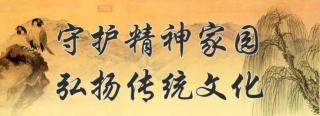 守护精神家园
弘扬传统文化